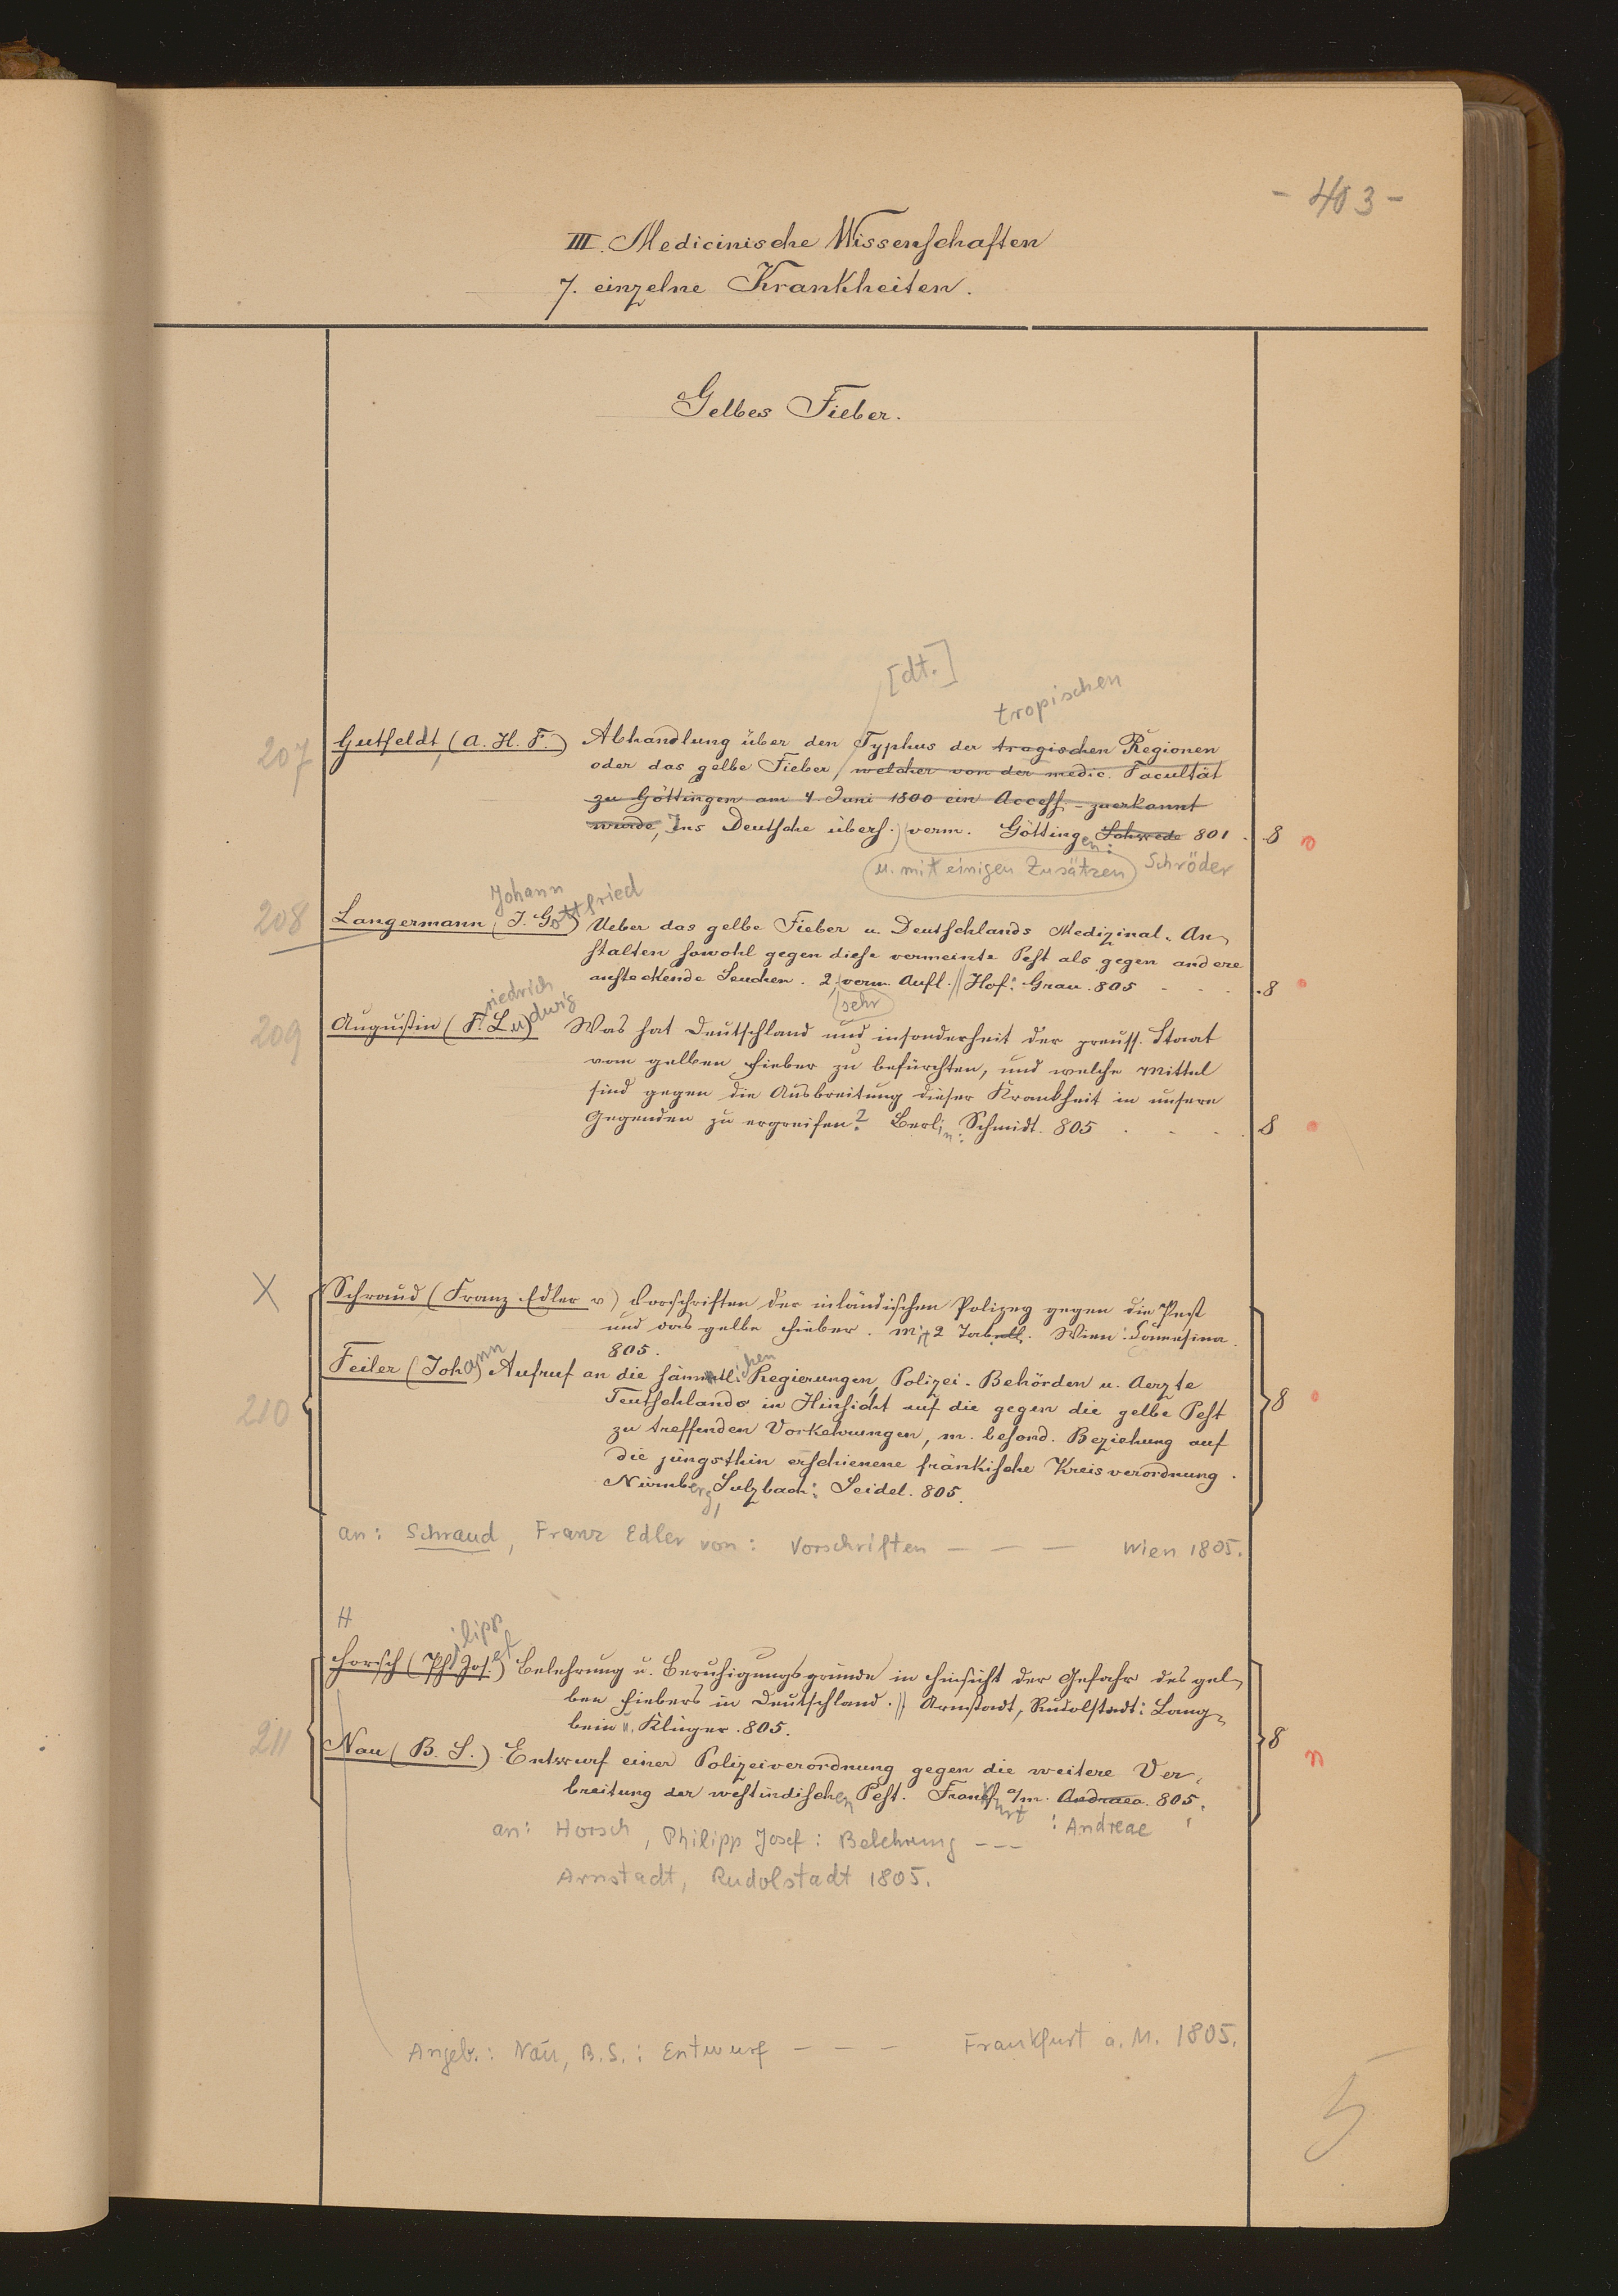 - 403 -
III. Medicinische Wissenschaften
7. einzelne Krankheiten.
Gelbes Fieber.
[dt.]
tropischen
207 Gutfeldt, (A. H. F.) Abhandlung über den Typhus der tragischen Regionen
oder das gelbe Fieber, welcher von der medic. Facultät
zu Göttingen am 4 Juni 1800 ein Access. zuerkannt
wurde, Ins Deutsche übers. verm. Göttingen: Schwede 801 . 8 n
u. mit einigen Zusätzen Schröder
208 Langermann, (J. Gottfried) Ueber das gelbe Fieber u. Deutschlands Medizinal-An-
Johann
stalten sowohl gegen diese vermeinte Pest als gegen andere
ansteckende Seuchen. 2, verm. Aufl. // Hof: Grau. 805 - - - . 8
sehr
209 Augustin (Friedrich Ludwig) Was hat Deutschland und insonderheit der preuss. Staat
vom gelben Fieber zu befürchten, und welche Mittel
sind gegen die Ausbreitung dieser Krankheit in unsere
Gegenden zu ergreifen? Berlin: Schmidt. 805 . - - . 8
X Schraud (Franz Edler v) Vorschriften der inländischen Polizey gegen die Pest
und das gelbe Fieber. Mit 2 Tabell. Wien: Camesina.
805.
Feiler (Johann) Aufruf an die sämmtlichen Regierungen, Polizei-Behörden u. Aerzte
210 Teutschlands in Hinsicht auf die gegen die gelbe Pest 8
zu treffenden Vorkehrungen, m. besond. Beziehung auf
die jüngsthin erschienene fränkische Kreisverordnung.
Nürnberg, Sulzbach: Seidel. 805.
an: Schraud, Franz Edler von: Vorschriften — — — Wien 1805.
H
Horsch (Philipp Josef) Belehrung u. Beruhigungsgründe in Hinsicht der Gefahr des gel-
ben Fiebers in Deutschland. // Arnstadt, Rudolstadt: Lang-
bein u. Klüger. 805.
211 Nau (B. S.) Entwurf einer Polizeiverordnung gegen die weitere Ver- 8 n
breitung der westindischen Pest. Frankfurt a/m. Andraea. 805.
: Andreae
an: Horsch, Philipp Josef: Belehrung - - -
Arnstadt, Rudolstadt 1805.
Angeb.: Nau, B.S.: Entwurf - - - Frankfurt a. M. 1805.
5